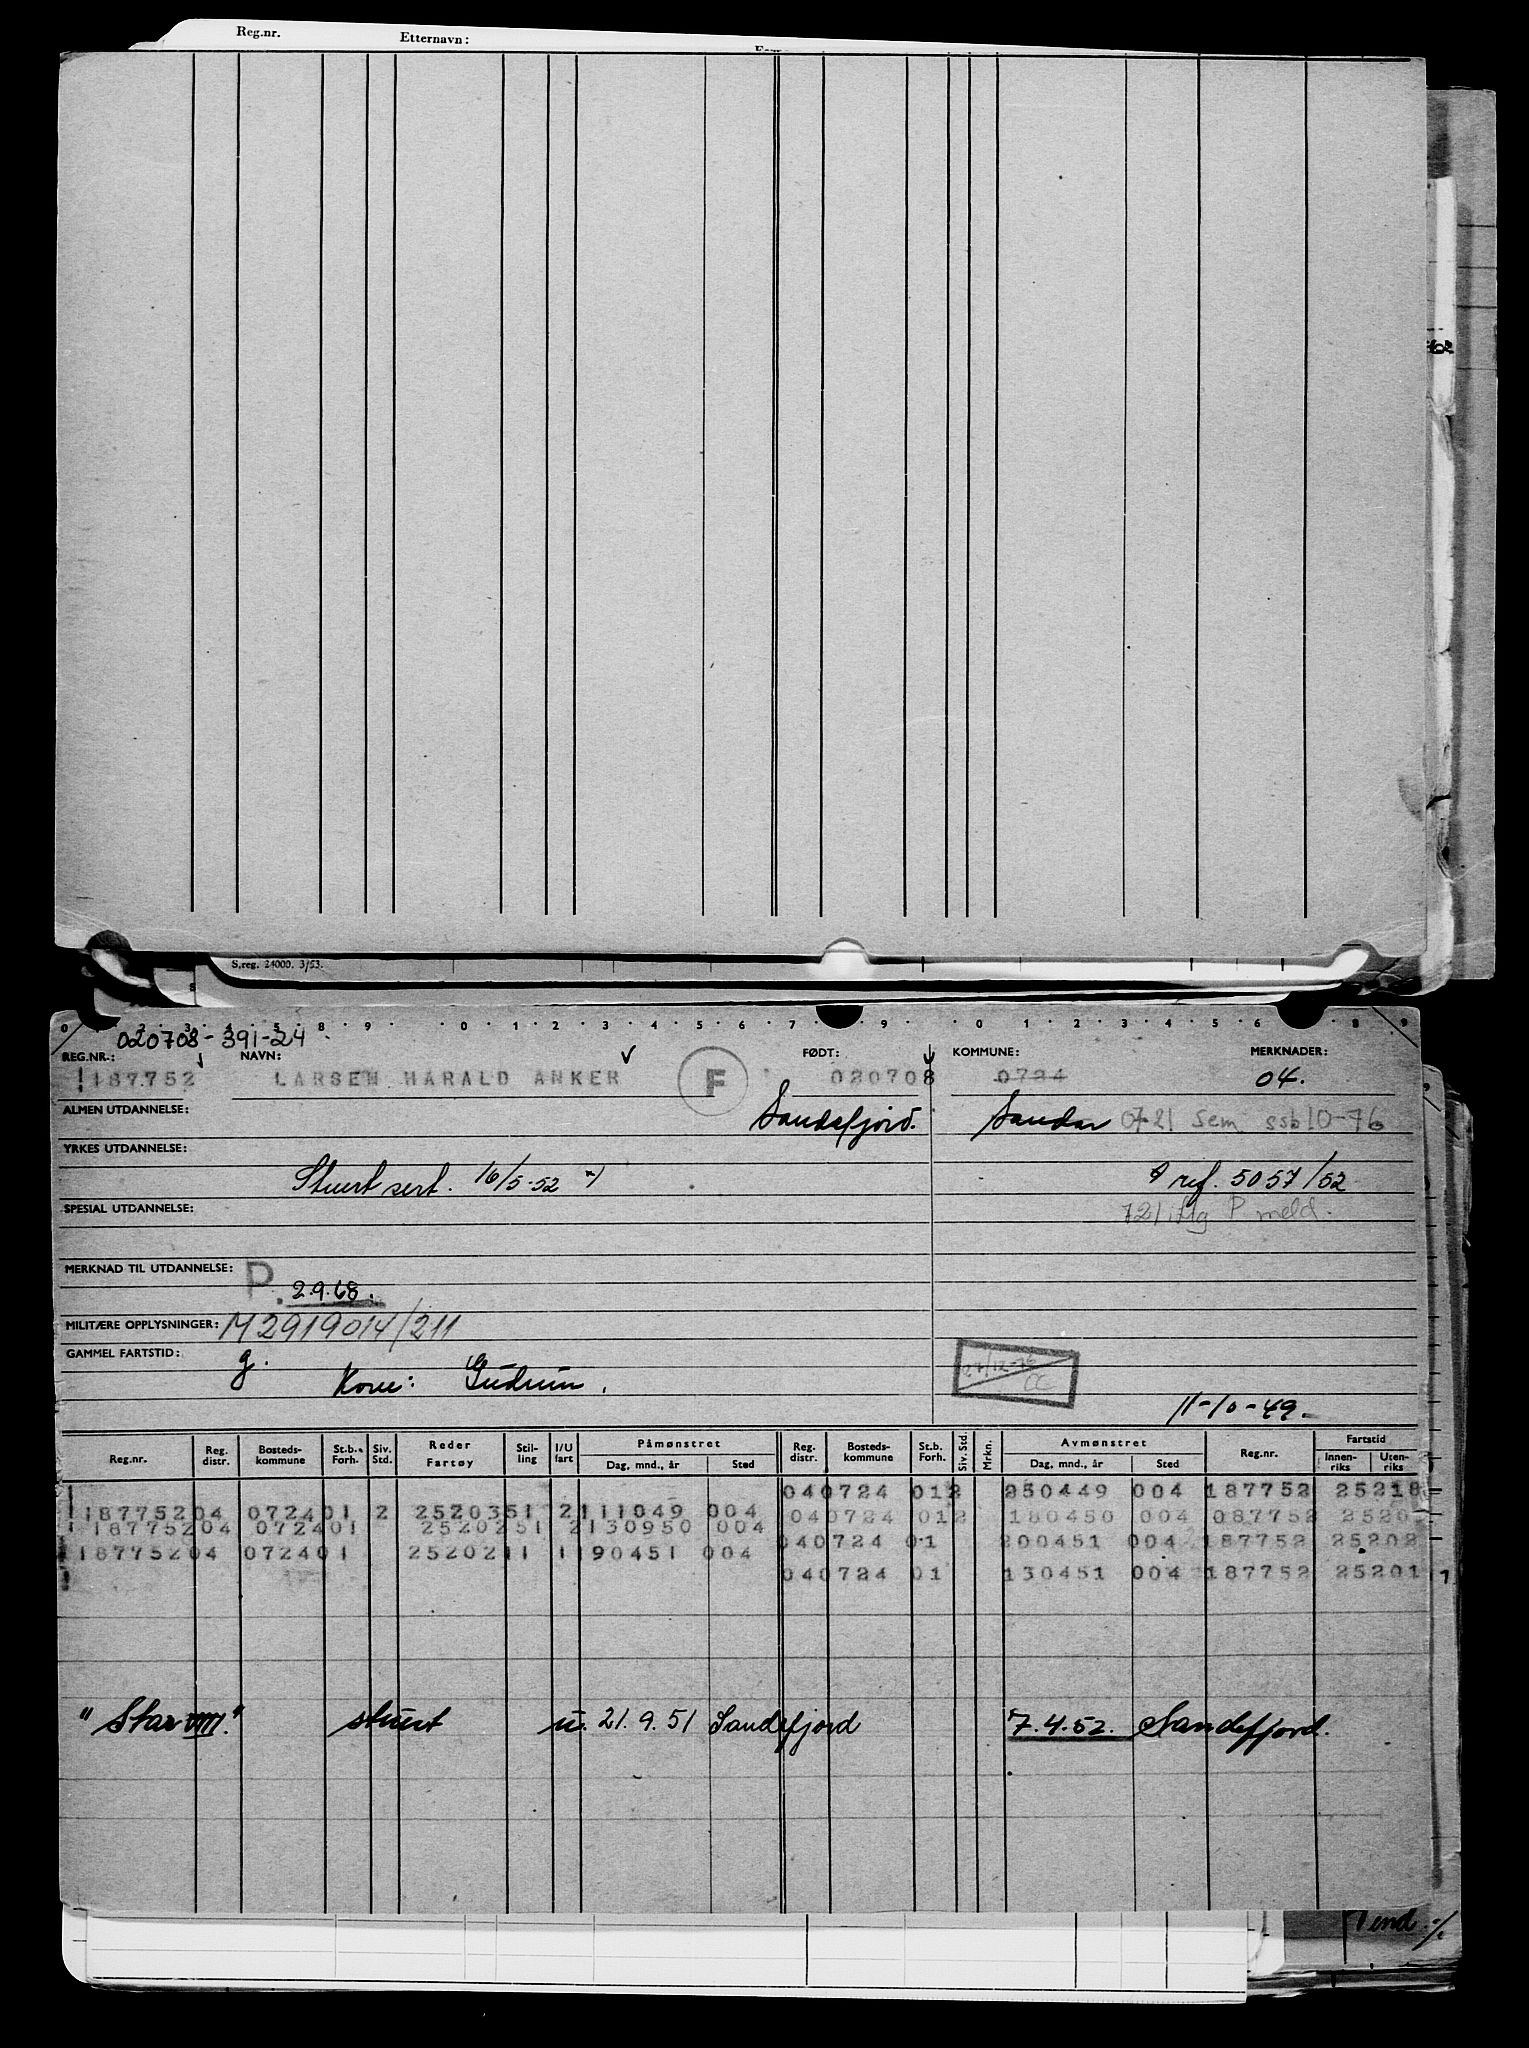 Reg.nr. Etternavn:
S.reg. 24000. 3/53.
020708-391-24
REG.NR.: NAVN: FØDT: KOMMUNE: MERKNADER:
187752 LARSEN HARALD ANKER F 020708 0724 04.
ALMEN UTDANNELSE: Sandefjord. Sandar 0721 Sem. ssb 10-76
YRKES UTDANNELSE:
Stuert sert. 16/5-52 ref. 5057/52
SPESIAL UTDANNELSE: P meld.
MERKNAD TIL UTDANNELSE: P. 2.9.68.
MILITÆRE OPPLYSNINGER: M2919014/211
GAMMEL FARTSTID: g. Kone: Gudrun.
11-10-49.
Reg.nr. Reg. distr. Bosteds-kommune St.b. Forh. Siv. Std. Reder Fartøy Stil-ling I/U fart Påmønstret Dag, mnd., år Sted Reg. distr. Bosteds-kommune St.b. Forh. Siv. Std. Mrkn. Avmønstret Dag, mnd., år Sted Reg.nr. Fartstid Innen-riks Uten-riks
040724 012 250449 004 187752 25218
187752 04 0724 01 2 2520351 2 111049 004 040724 012 180450 004 087752 2520
187752 04 0724 01 2520251 2 130950 004
040724 01 200451 004 187752 25202
187752 04 0724 01 2520211 1 190451 004
040724 01 130451 004 187752 25201
"Star VIII." stuert u. 21.9.51 Sandefjord 7.4.52. Sandefjord.
Vend ./.